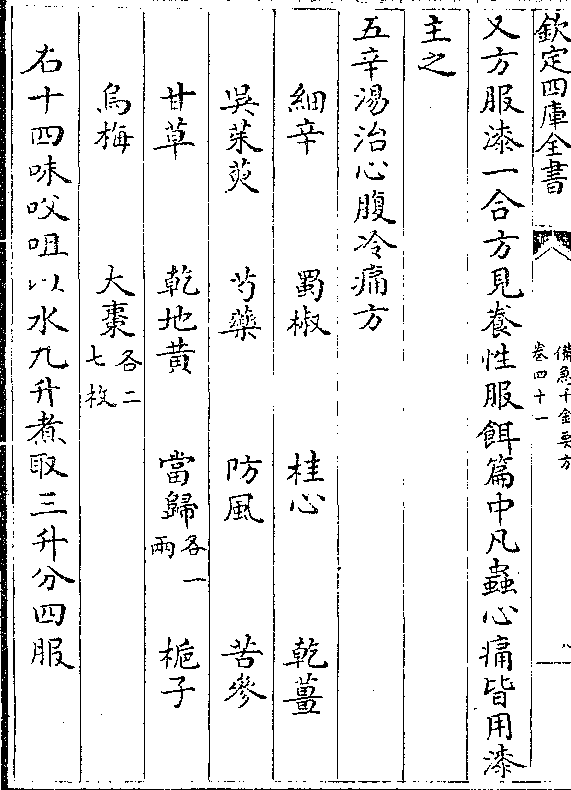 欽定四庫全書
備急千金要方
卷四十一
八
又方服漆一合方見養性服餌篇中凡蟲心痛皆用漆
主之
五辛湯治心腹冷痛方
細辛 蜀椒 桂心 乾薑
吳茱萸 芍藥 防風 苦參
甘草 乾地黃 當歸各一兩 梔子
烏梅 大棗各二七枚
右十四味㕮咀以水九升煮取三升分四服